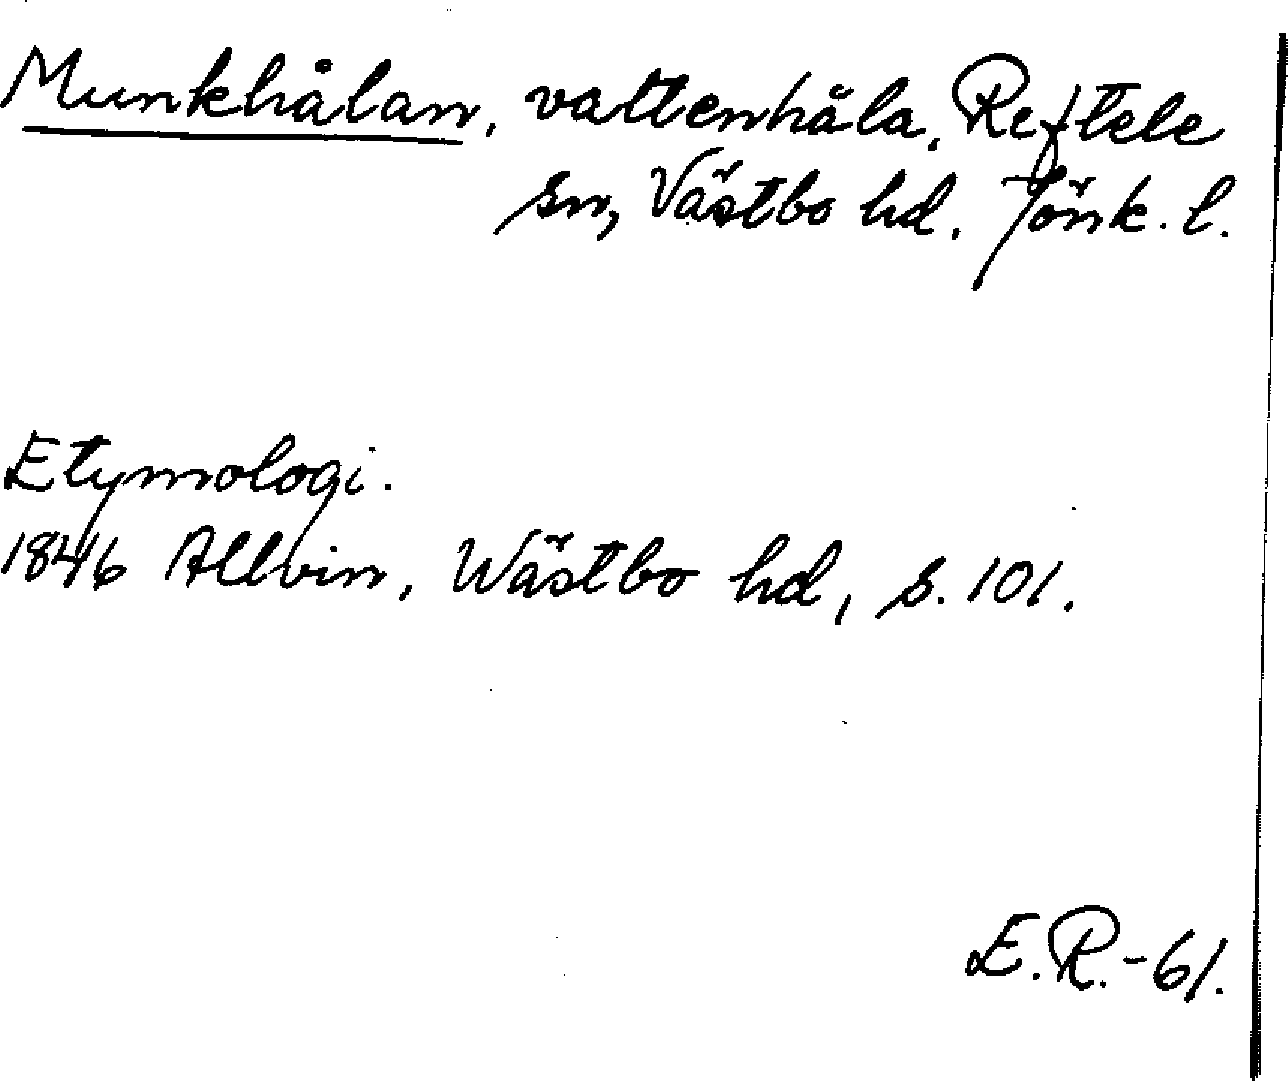 Munkhålan, vattenhåla, Reftele
sn, Västbo hd. Jönk. l.
Etymologi.
1846 Allvin, Wästbo hd, s. 101.
E.R.-61.